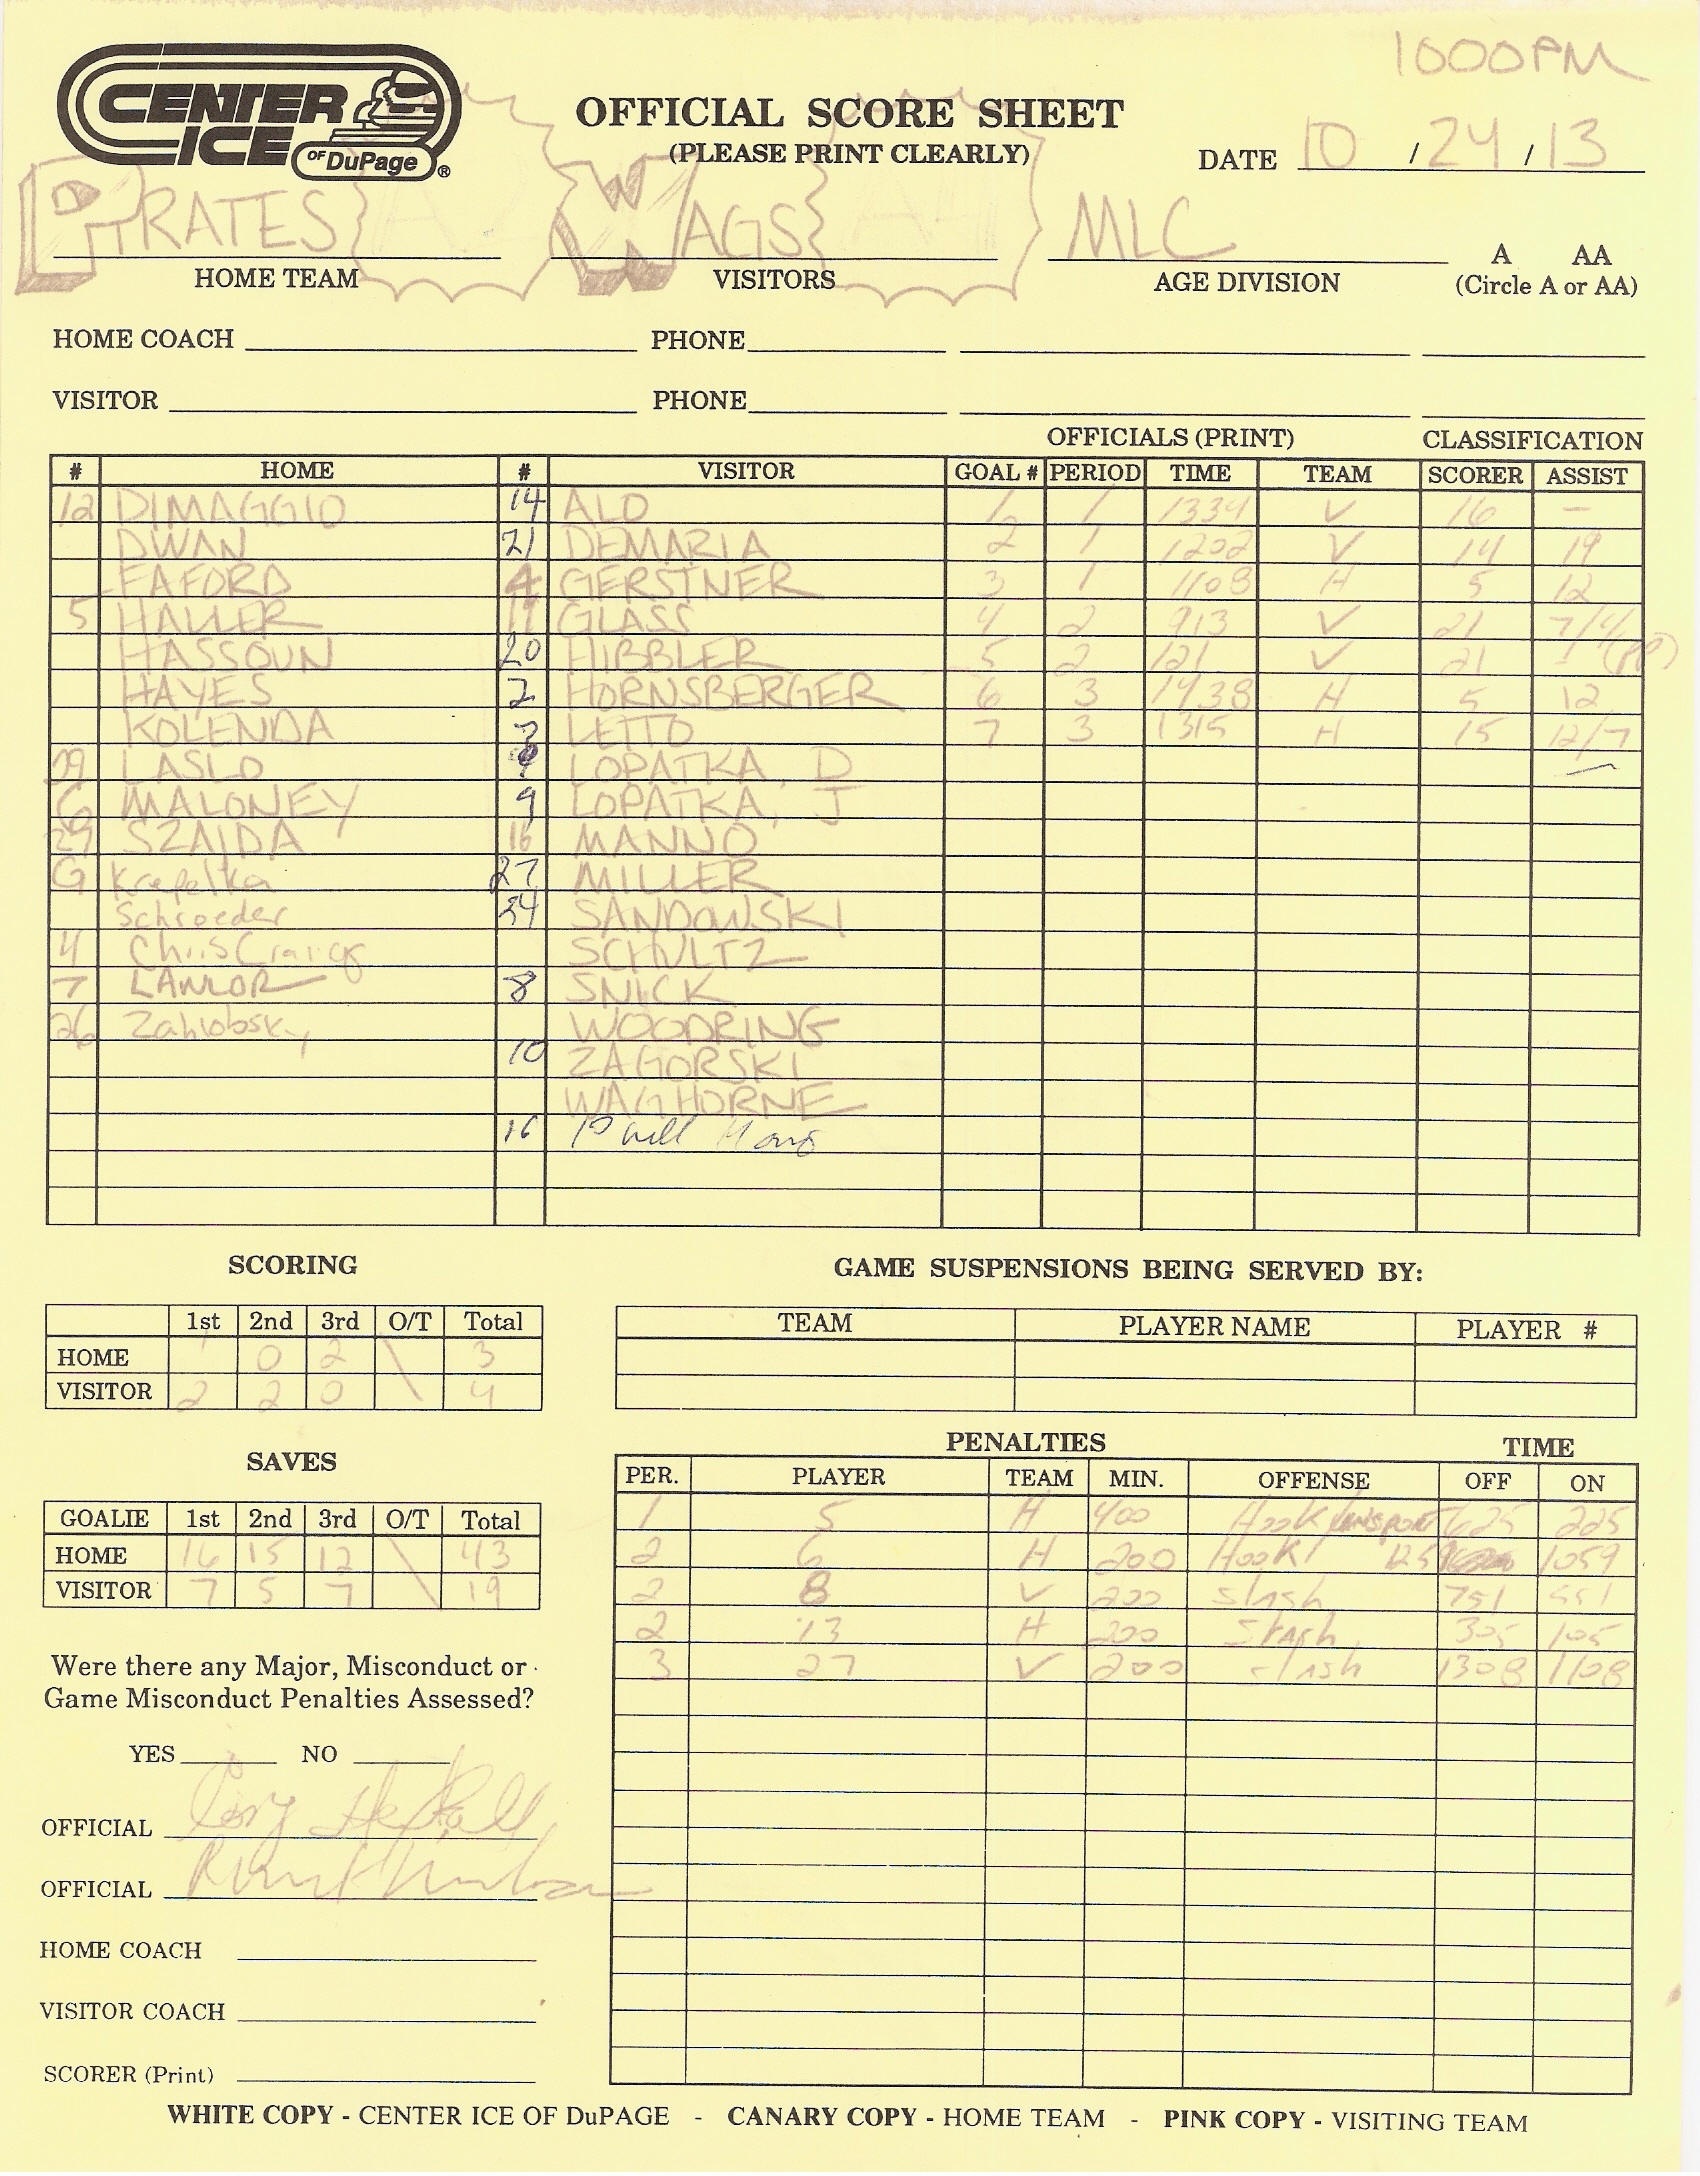 1000PM
CENTER ICE OF DuPage ®
OFFICIAL SCORE SHEET
(PLEASE PRINT CLEARLY)
DATE 10 / 24 / 13
PIRATES WAGS MLC A AA
HOME TEAM VISITORS AGE DIVISION (Circle A or AA)
HOME COACH PHONE
VISITOR PHONE
OFFICIALS (PRINT) CLASSIFICATION
# HOME # VISITOR GOAL # PERIOD TIME TEAM SCORER ASSIST
12 DIMAGGIO 14 ALO 1 1 1334 V 16 -
DWAN 21 DEMARIA 2 1 1202 V 14 19
EAFORD 4 GERSTNER 3 1 1108 H 5 12
5 HALLER 11 GLASS 4 2 913 V 21 7/4 (PP)
HASSOUN 20 HIBBLER 5 2 121 V 21 -
HAYES 2 HORNSBERGER 6 3 1438 H 5 12
KOLENDA LETTO 7 3 1315 H 15 12/7
LASLO LOPATKA, D
G MALONEY 9 LOPATKA, J
29 SZAJDA 16 MANNO
G Krepelka 27 MILLER
Schroeder 24 SANDOWSKI
4 Chris SCHULTZ
7 8 SNICK
26 Zahlobsky WOODRING
10 ZAGORSKI
WAGHORNE
16
SCORING
1st 2nd 3rd O/T Total
HOME 1 0 2 \ 3
VISITOR 2 2 0 \ 4
GAME SUSPENSIONS BEING SERVED BY:
TEAM PLAYER NAME PLAYER #
SAVES
GOALIE 1st 2nd 3rd O/T Total
HOME 16 15 12 \ 43
VISITOR 7 5 7 \ 19
PENALTIES TIME
PER. PLAYER TEAM MIN. OFFENSE OFF ON
1 5 H 400 Hook/unsport 625 225
2 6 H 200 Hook 1259 1059
2 8 V 200 slash 751 551
2 13 H 200 slash 305 105
3 27 V 200 slash 1308 1108
Were there any Major, Misconduct or
Game Misconduct Penalties Assessed?
YES NO
OFFICIAL
OFFICIAL
HOME COACH
VISITOR COACH
SCORER (Print)
WHITE COPY - CENTER ICE OF DuPAGE - CANARY COPY - HOME TEAM - PINK COPY - VISITING TEAM